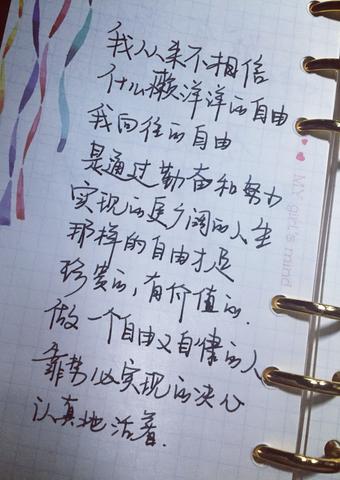 我从来不相信
什么懒洋洋的自由
我向往的自由
是通过勤奋和努力
实现的更广阔的人生
那样的自由才是
珍贵的，有价值的.
做一个自由又自律的人
靠势必实现的决心
认真地活着.
MY girl's mind